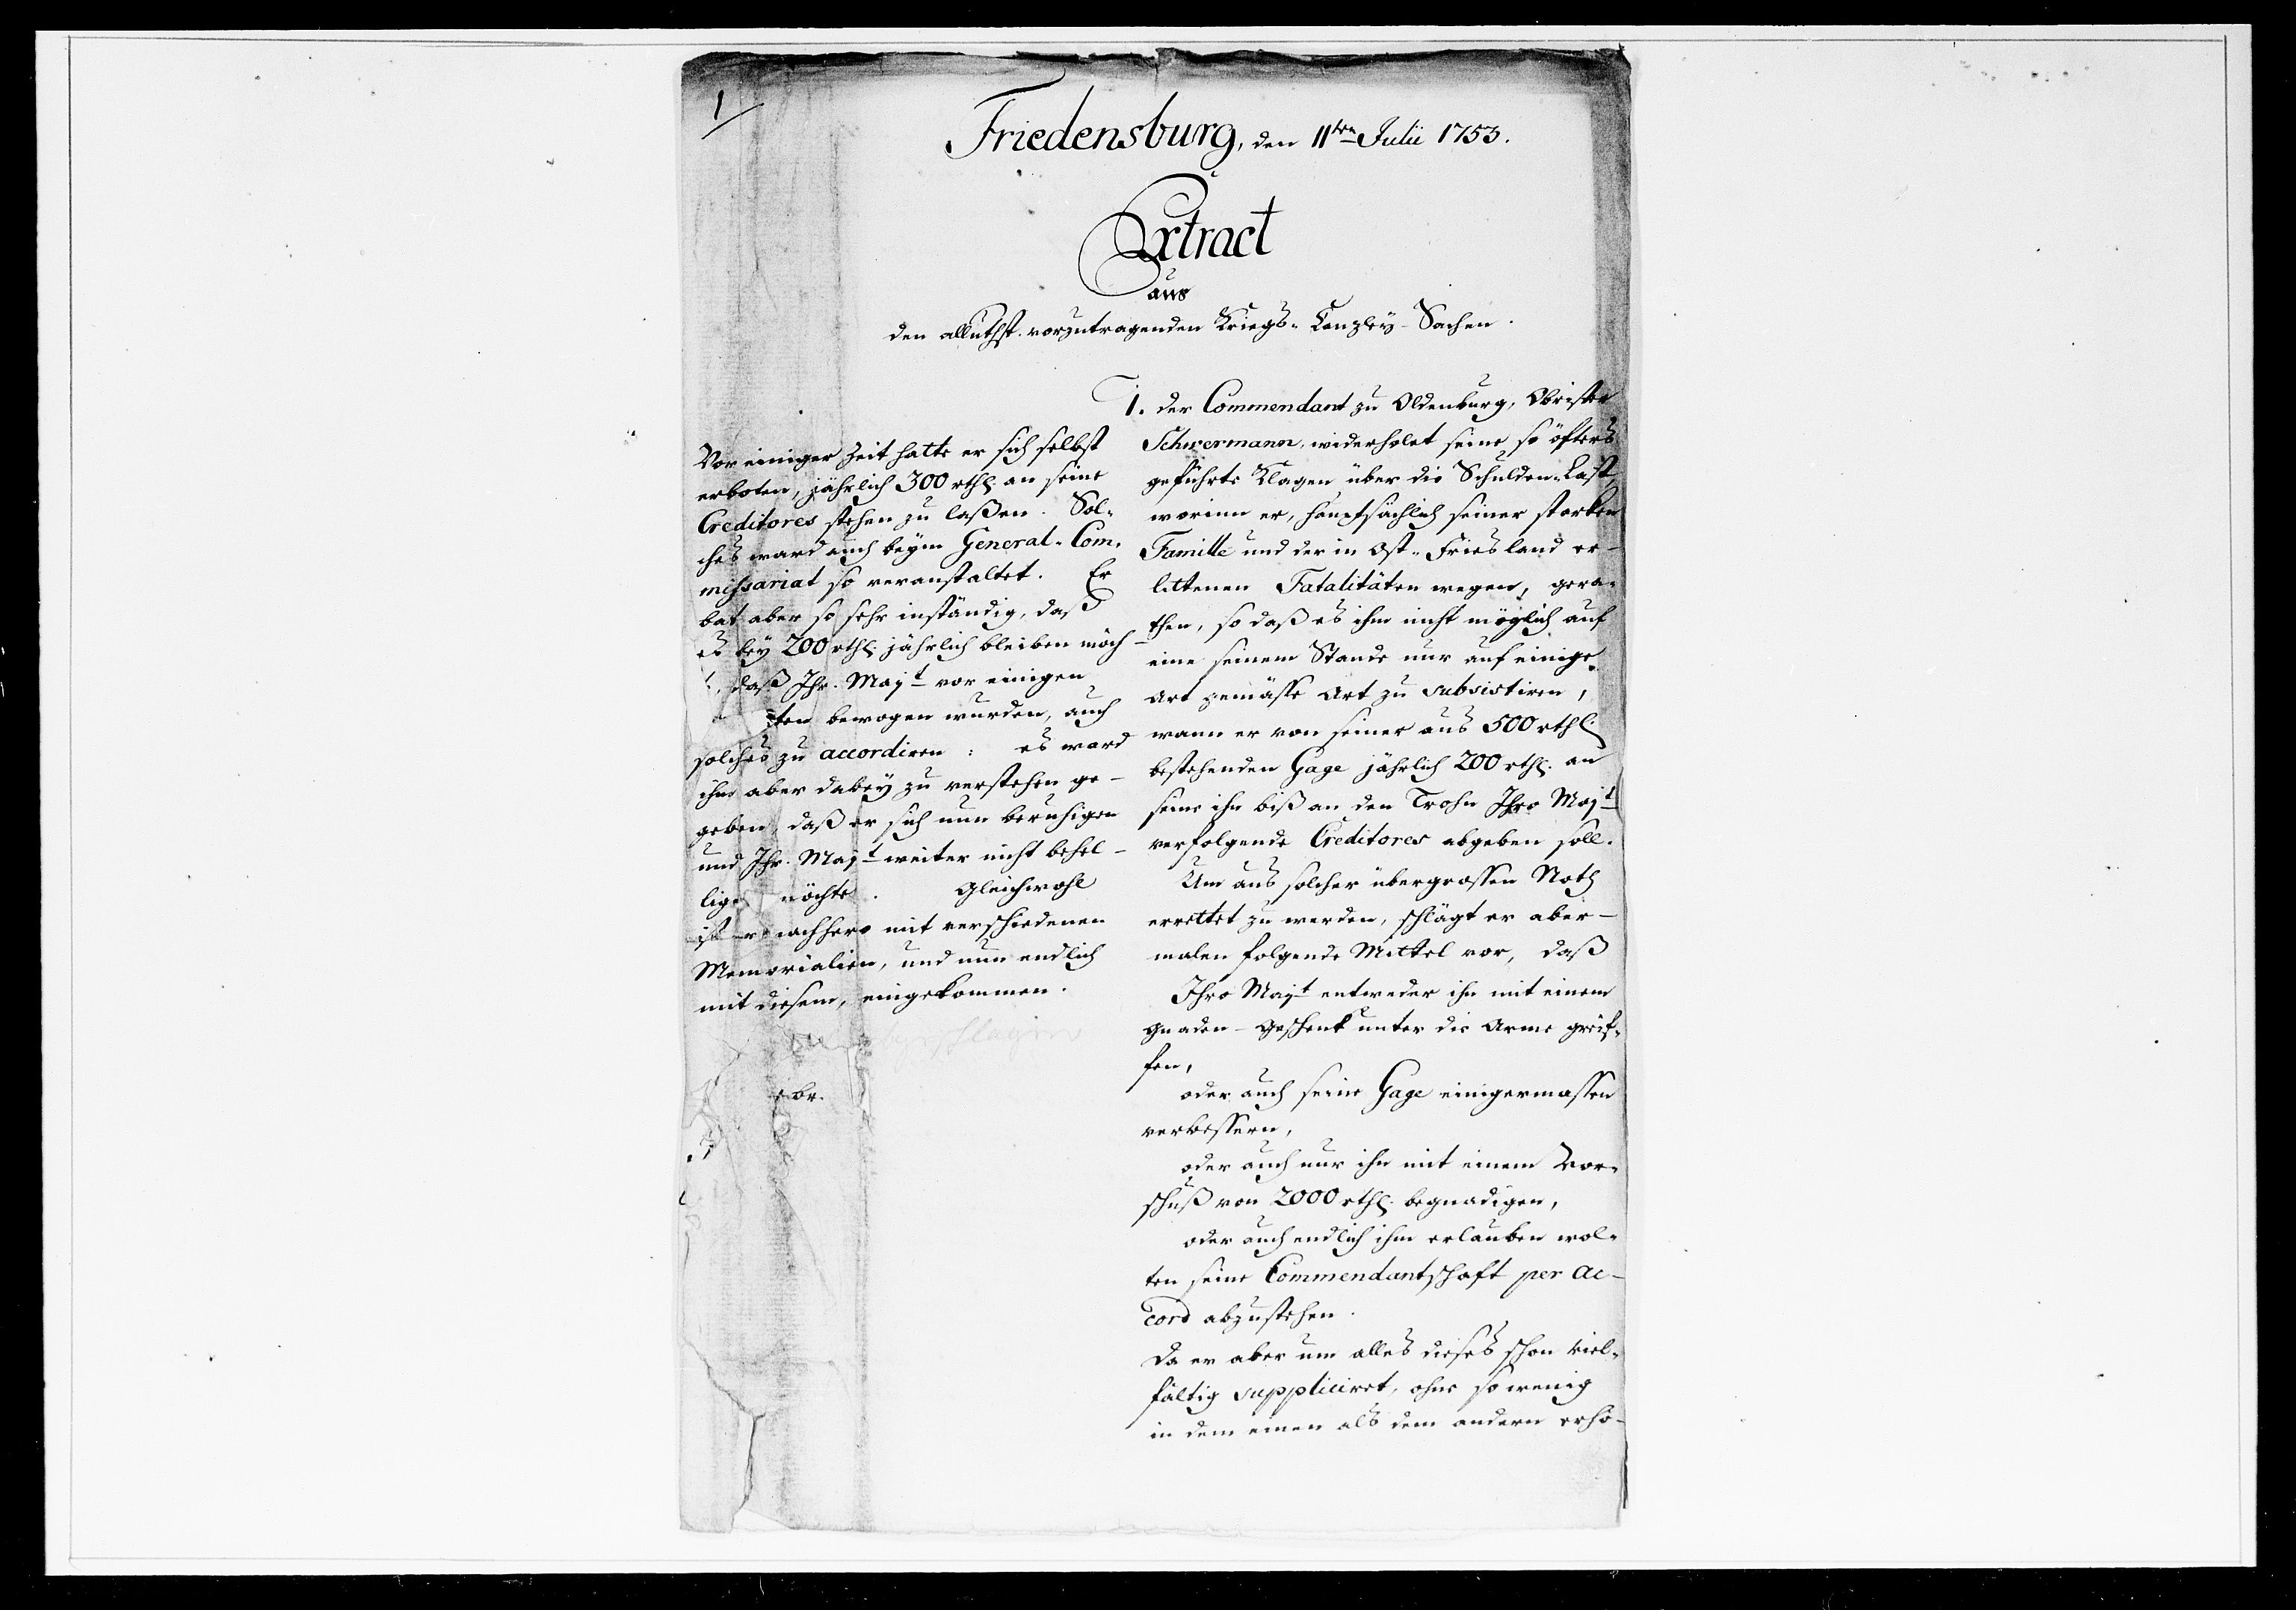 1
Friedensburg, den 11ten Julii 1753.
Extract
aus
den alluthst. vorzutragenden Kriegs-Canzley-Sachen.
Vor einiger Zeit hatte er sich selbst
erboten, jährlich 300 rthl. an seine
Creditores stehen zu laßen. Sol-
ches ward auch beym General-Com-
missariat so veranstaltet. Er
bat aber so sehr inständig, daß
es bey 200 rthl. jährlich bleiben möch-
daß Ihr. Majt vor einigen
bewogen wurden, auch
solches zu accordiren: es ward
ihm aber dabey zu verstehen ge-
geben, daß er sich nun beruhigen
und Ihr. Majt weiter nicht behel-
ligen möchte. Gleichwohl
ist er nachhero mit verschiedenen
Memorialien, und nun endlich
mit diesem, eingekommen.
1. Der Commendant zu Oldenburg, Obrister
Schwermann, widerholet seine so öfters
geführte Klagen über die Schulden-Last,
worinn er, hauptsächlich seiner starken
Famille und der in Ost-Friesland er-
littenen Fatalitäten wegen, gera-
then, so daß es ihm nicht möglich auf
eine seinem Stande nur auf einige
Art gemässe Art zu subsistiren,
wann er von seiner aus 500 rthl.
bestehenden Gage jährlich 200 rthl. an
seine ihn biß an den Trohn Ihro Majt
verfolgende Creditores abgeben soll.
Um aus solcher übergrossen Noth
errettet zu werden, schlägt er aber-
malen folgende Mittel vor, daß
Ihro Majt entweder ihn mit einem
Gnaden-Geschenk unter die Arme greif-
fen,
oder auch seine Gage einigermassen
verbessern,
oder auch nur ihn mit einem Vor-
schuß von 2000 rthl. begnadigen,
oder auch endlich ihm erlauben wol-
ten seine Commendantschaft per ac-
cord abzustehen.
Da er aber um alles dieses schon viel-
fältig suppliciret, ohne so wenig
in dem einen als dem andern erhö-